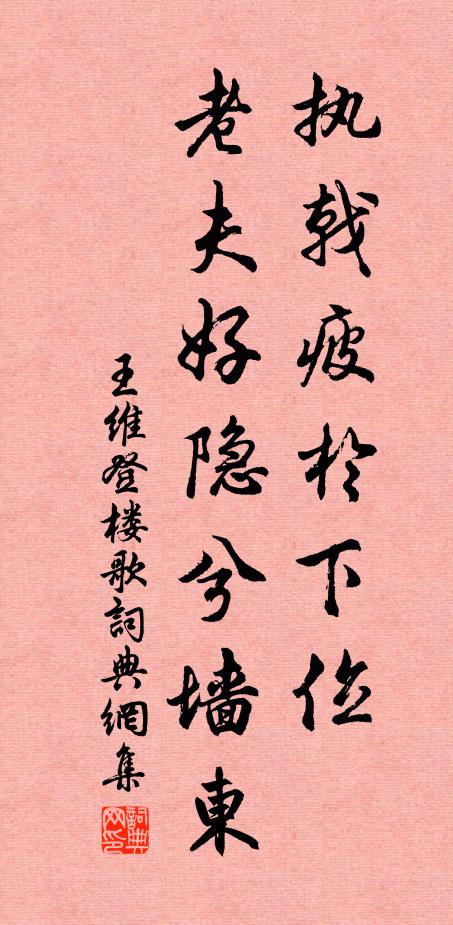 执戟疲於下位
老夫好隐兮墙東
王维登楼歌詞典網集
詞典网印